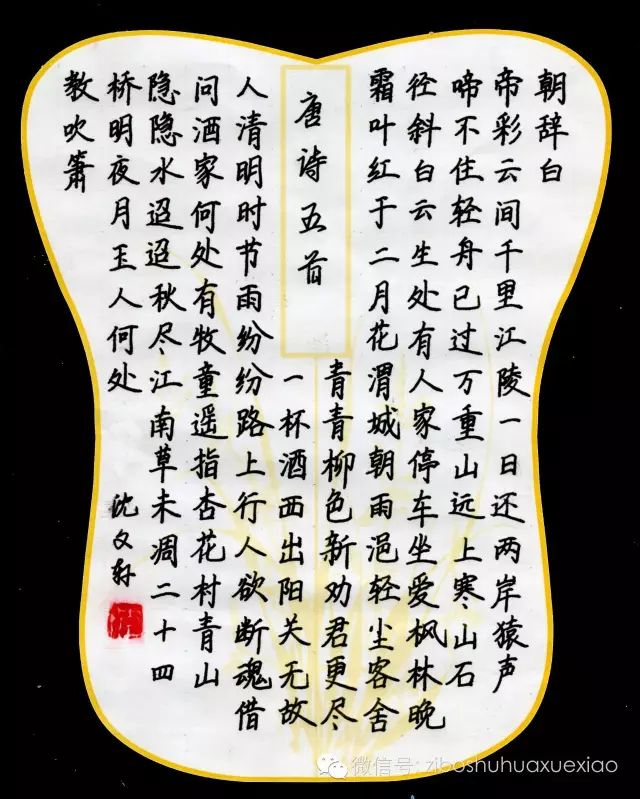 朝辞白
帝彩云间千里江陵一日还两岸猿声
啼不住轻舟已过万重山远上寒山石
径斜白云生处有人家停车坐爱枫林晚
霜叶红于二月花渭城朝雨浥轻尘客舍
唐诗五首
青青柳色新劝君更尽
一杯酒西出阳关无故
人清明时节雨纷纷路上行人欲断魂借
问酒家何处有牧童遥指杏花村青山
隐隐水迢迢秋尽江南草未凋二十四
桥明夜月王人何处
教吹箫
沈文轩
微信号: ziboshuhuaxuexiao